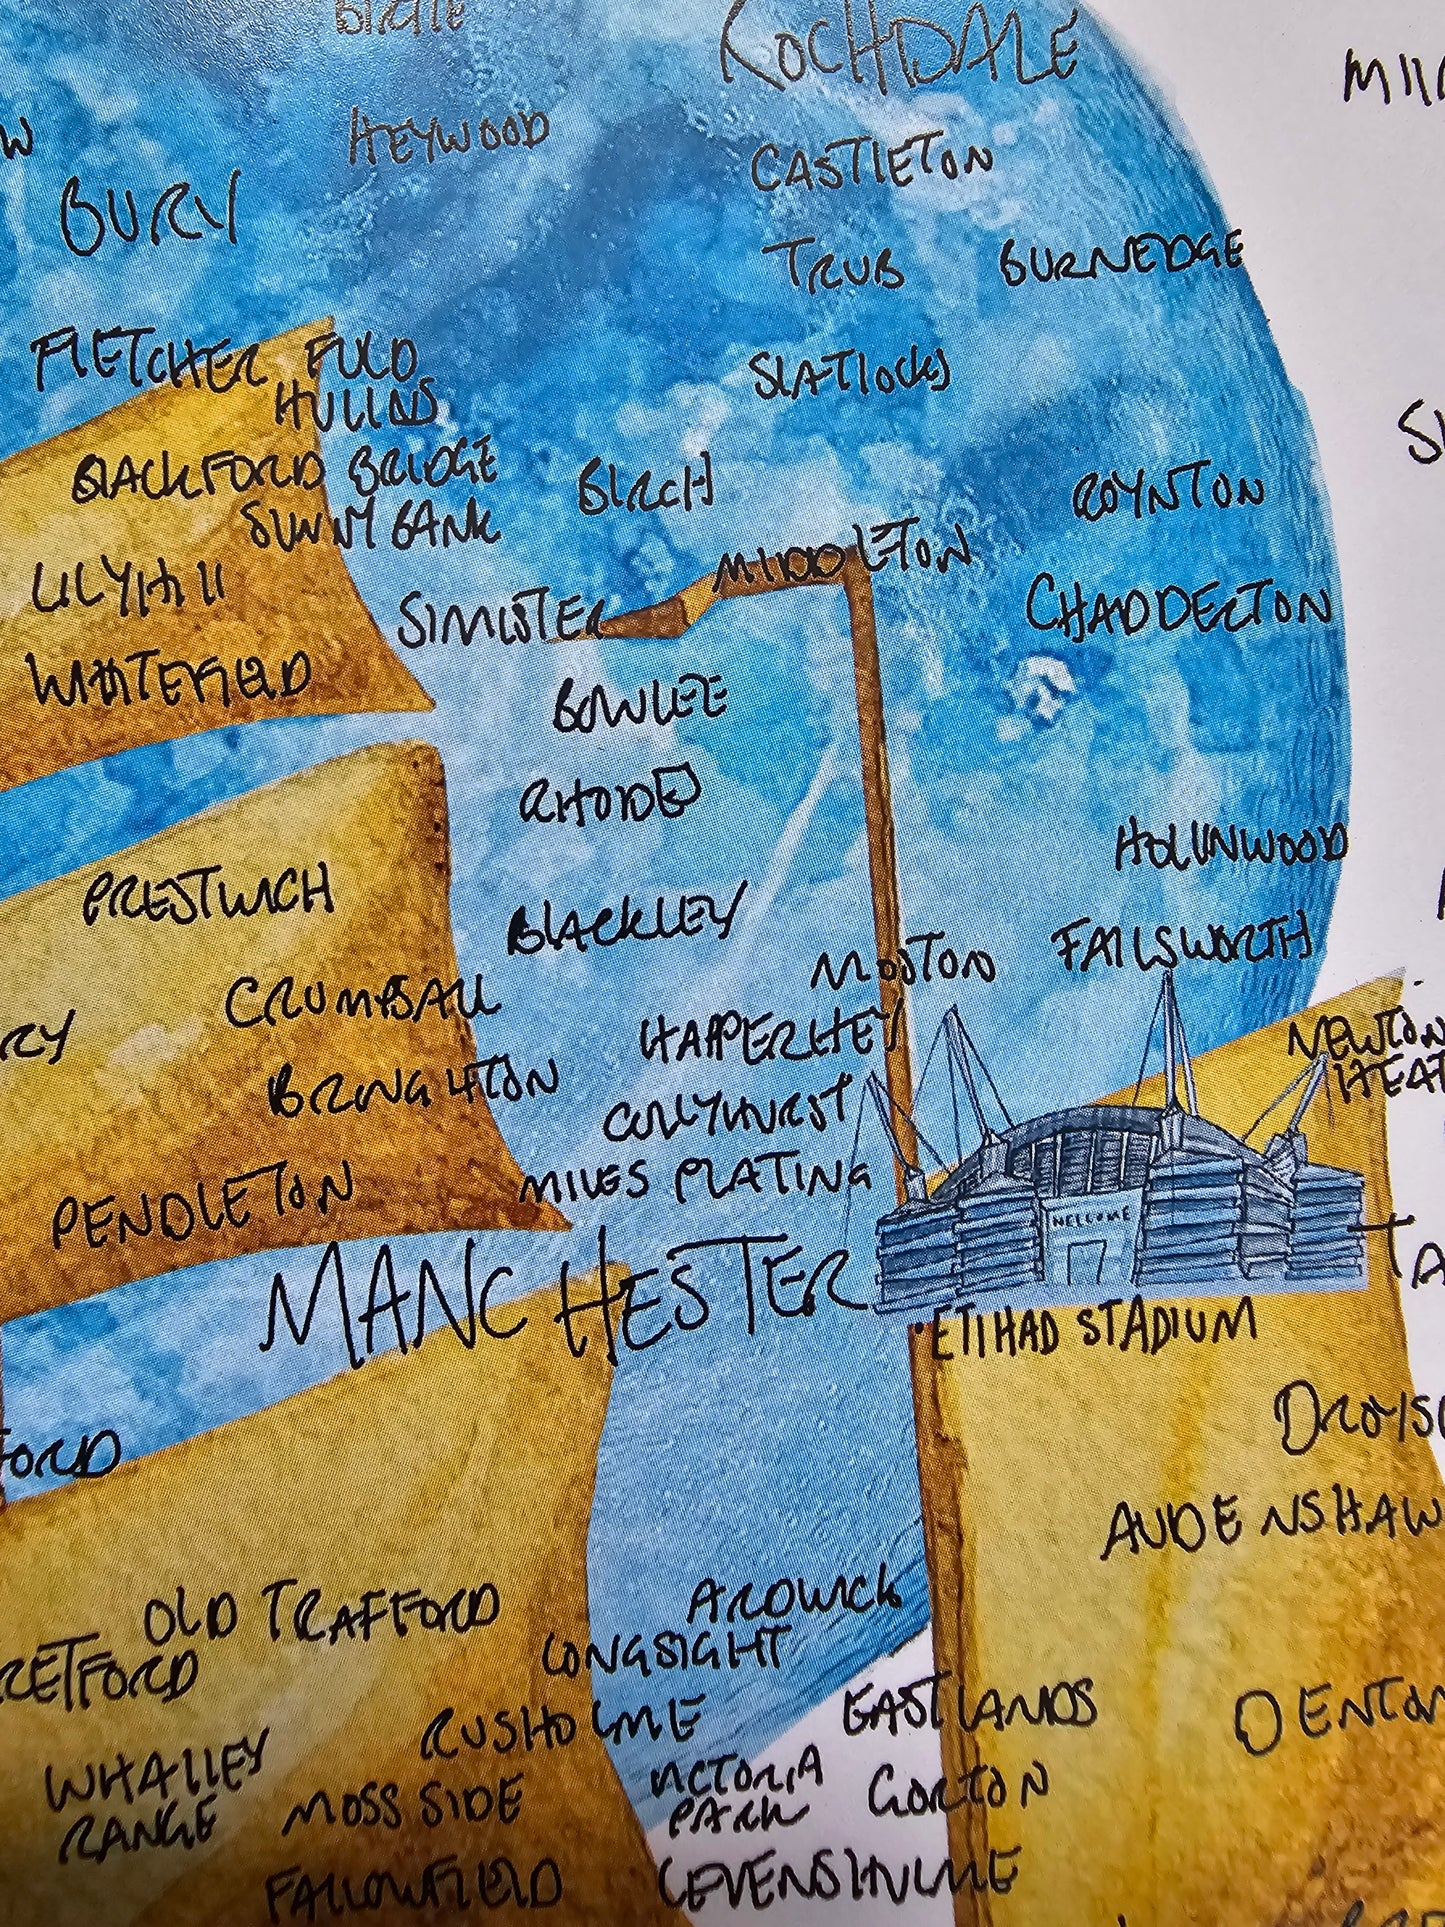 BIRTLE
ROCHDALE
HEYWOOD
CASTLETON
BURY
TRUB
BURNEDGE
FLETCHER FOLD
HOLLINS
SLATTOCKS
BLACKFORD BRIDGE
SUNNY BANK
BIRCH
ROYNTON
MIDDLETON
LILY HILL
SIMISTER
CHADDERTON
WHITEFIELD
BOWLEE
RHODES
HOLLINWOOD
PRESTWICH
BLACKLEY
MOSTON
FAILSWORTH
CRUMPSALL
HARPERHEY
NEWTON
HEAT
BROUGHTON
COLLYHURST
PENDLETON
MILES PLATING
WELCOME
MANCHESTER
ETIHAD STADIUM
DROYS
FORD
AUDENSHAW
OLD TRAFFORD
ARDWICK
RETFORD
LONGSIGHT
RUSHOLME
EASTLANDS
DENTON
WHALLEY
RANGE
MOSS SIDE
VICTORIA
PARK
GORTON
FALLOWFIELD
LEVENSHULME